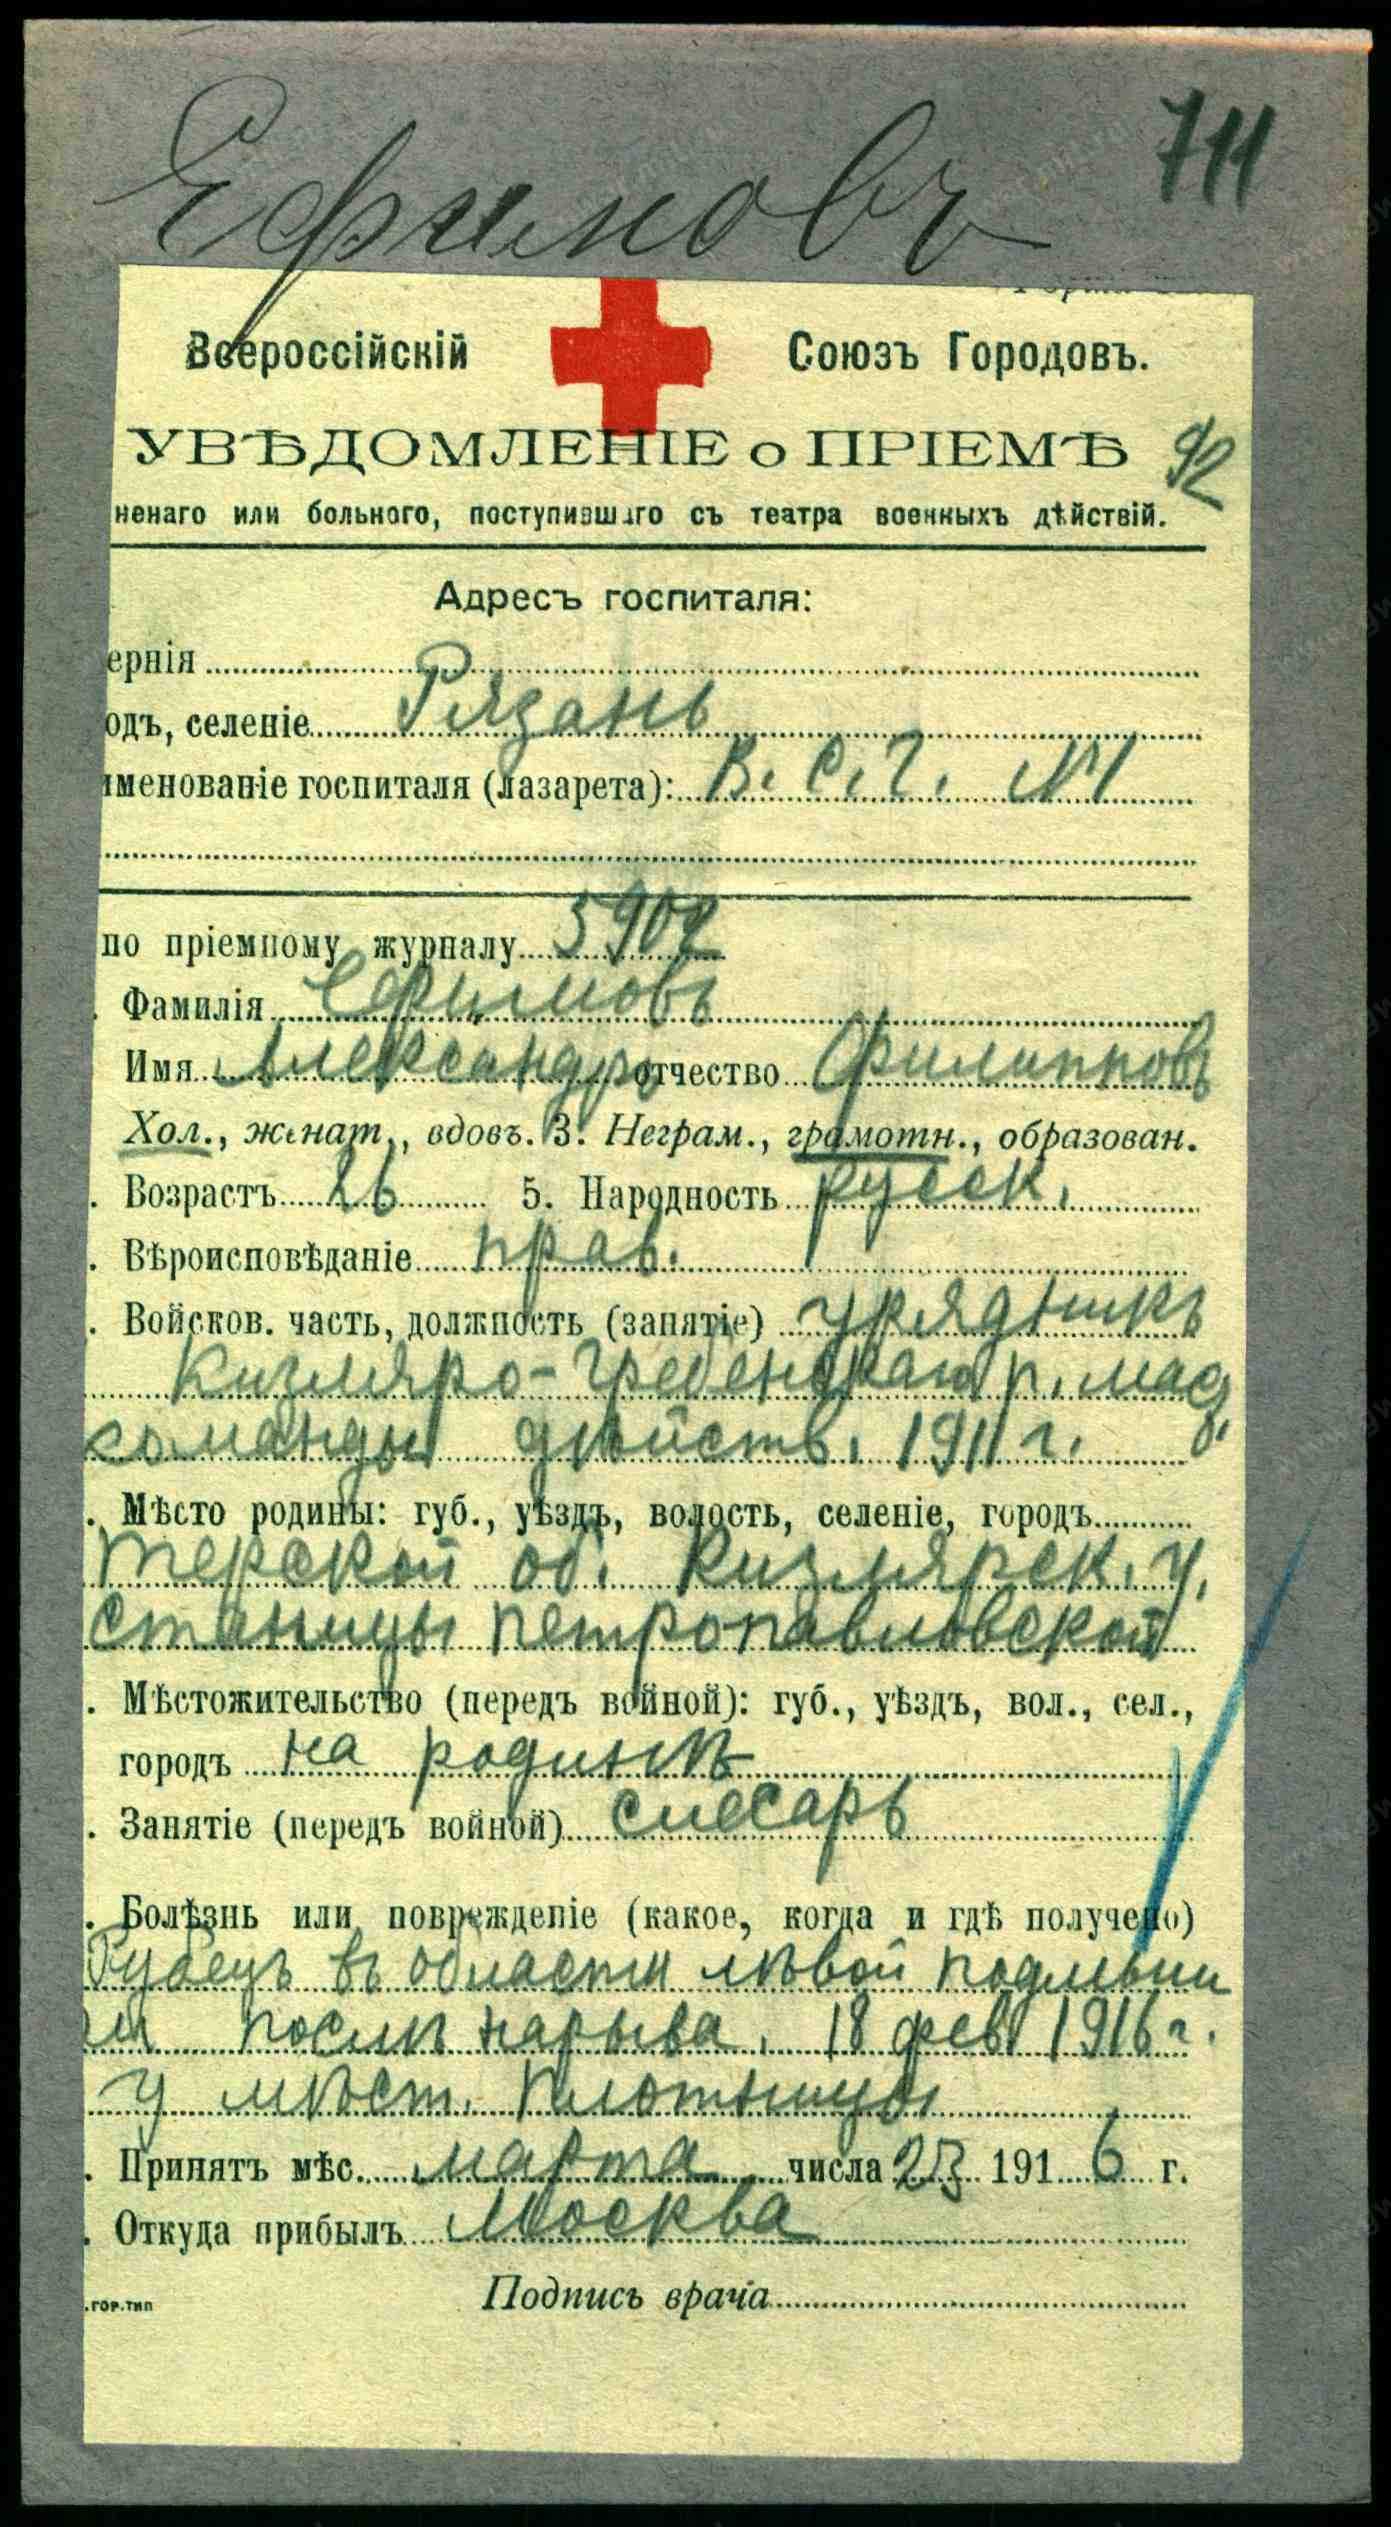 Ефимовъ 711
Всероссійскій Союзъ Городовъ.
УВѢДОМЛЕНІЕ о ПРІЕМѢ 92
ненаго или больного, поступившаго съ театра военныхъ дѣйствій.
Адресъ госпиталя:
ернія
одъ, селеніе Рязань
именованіе госпиталя (лазарета): В. С. Г. №1
по пріемному журналу 5902
Фамилія Ефимовъ
Имя Александръ отчество Филипповъ
Хол., женат., вдовъ. 3. Неграм., грамотн., образован.
. Возрастъ 26 5. Народность русск.
. Вѣроисповѣданіе прав.
. Войсков. часть, должность (занятіе) урядникъ
Кизляро-Гребенскаго п. мас
команды дѣйств. 1911 г.
. Мѣсто родины: губ., уѣздъ, волость, селеніе, городъ
Терской об. Кизлярск. у.
станицы Петропавловской
. Мѣстожительство (передъ войной): губ., уѣздъ, вол., сел.,
городъ на родинѣ
. Занятіе (передъ войной) слесарь
. Болѣзнь или поврежденіе (какое, когда и гдѣ получено)
Рубецъ въ области лѣвой подмыш
послѣ нарыва. 18 фев 1916 г.
у мѣст. Плотницы
. Принятъ мѣс. марта числа 23 1916 г.
. Откуда прибылъ Москва
.ГОР.ТИП Подпись врача